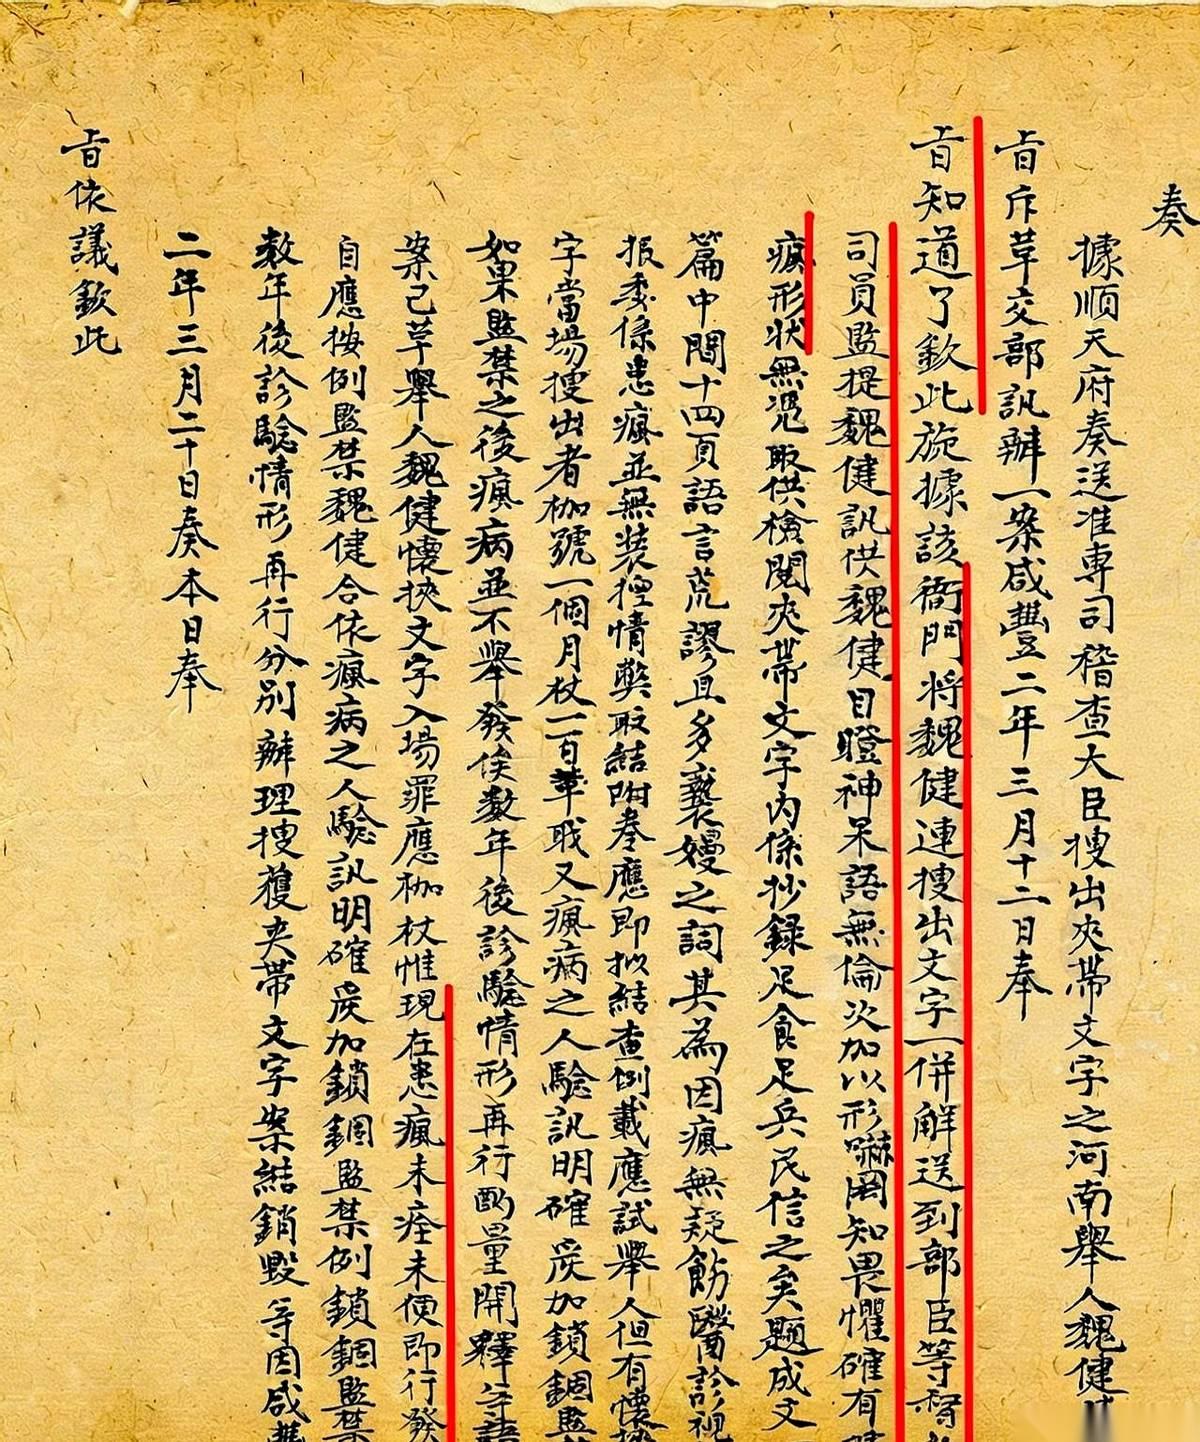 奏
據順天府奏送准專司稽查大臣搜出夾帶文字之河南舉人魏健
旨斥革交部訊辦一案咸豐二年三月十二日奉
旨知道了欽此旋據該衙門將魏健連搜出文字一併解送到部臣等督
司員監提魏健訊供魏健目瞪神呆語無倫次加以形嚇罔知畏懼確有
瘋形狀無從取供檢閱夾帶文字內係抄錄足食足兵民信之矣題成文
篇中間十四頁語言荒謬且多褻嫚之詞其為因瘋無疑飭醫診視
报委係患瘋並無裝捏情弊取結附卷應即拟結查例載應試舉人但有懷挾
字當場搜出者枷號一個月杖一百革職又瘋病之人驗訊明確嚴加鎖錮監
如果監禁之後瘋病並不舉發俟数年後診驗情形再行酌量開釋等語
案已革舉人魏健懷挾文字入場罪應枷杖惟現在患瘋未痊未便即行發
自應按例監禁魏健合依瘋病之人驗訊明確嚴加鎖錮監禁例鎖錮監禁
数年後診驗情形再行分別辦理搜獲夾帶文字案結銷毀等因咸豐
二年三月二十日奏本日奉
旨依議欽此